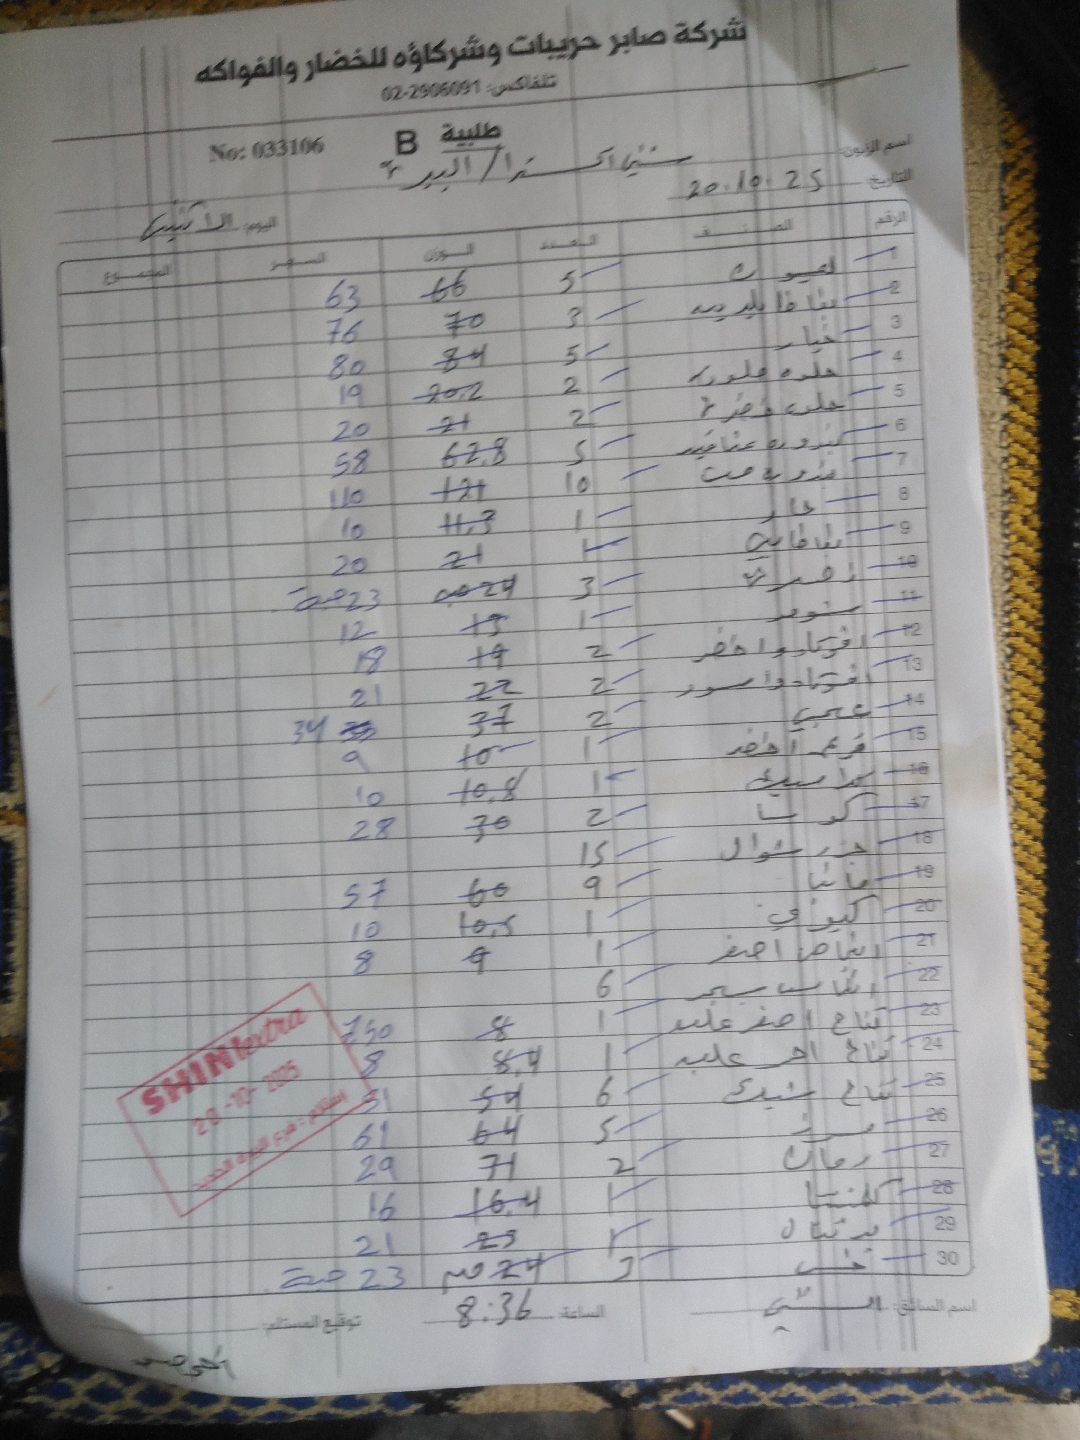 شركة صابر حريبات وشركاؤه للخضار والفواكه
تلفاكس: 02-2906091
طلبية B No: 033106
اسم الزبون: شني اكسترا / البيرة
التاريخ: 20.10.25
اليوم: الاثنين
الرقم الصنف العدد الوزن السعر المجموع
1 ليمون 5 66 63
2 بطاطا 3 70 76
3 خيار 5 84 80
4 2 20.2 19
5 2 21 20
6 بندورة عناقيد 5 62.8 58
7 بندورة حب 10 121 110
8 حار 1 11.3 10
9 بطاطا 1 21 20
10 زهرة 3 24 حبه 23 حبة
11 شومر 1 13 12
12 افوكادو اخضر 2 19 18
13 افوكادو اسود 2 22 21
14 عنب 2 37 34
15 قرع اخضر 1 10 9
16 1 10.8 10
17 كوسا 2 30 28
18 جزر شوال 15
19 9 60 57
20 كيوي 1 10.5 10
21 اجاص اصفر 1 9 8
22 6
23 تفاح اصفر علبه 1 8 750
24 تفاح احمر علبه 1 8.4 8
25 تفاح 6 54 51
26 موز 5 64 61
27 رمان 2 71 29
28 كلمنتينا 1 16.4 16
29 برتقال 23 21
30 خس 24 حبه 23 حبة
SHINI extra
20-10-2025
اسم السائق: الساعة: 8:36 توقيع المستلم: